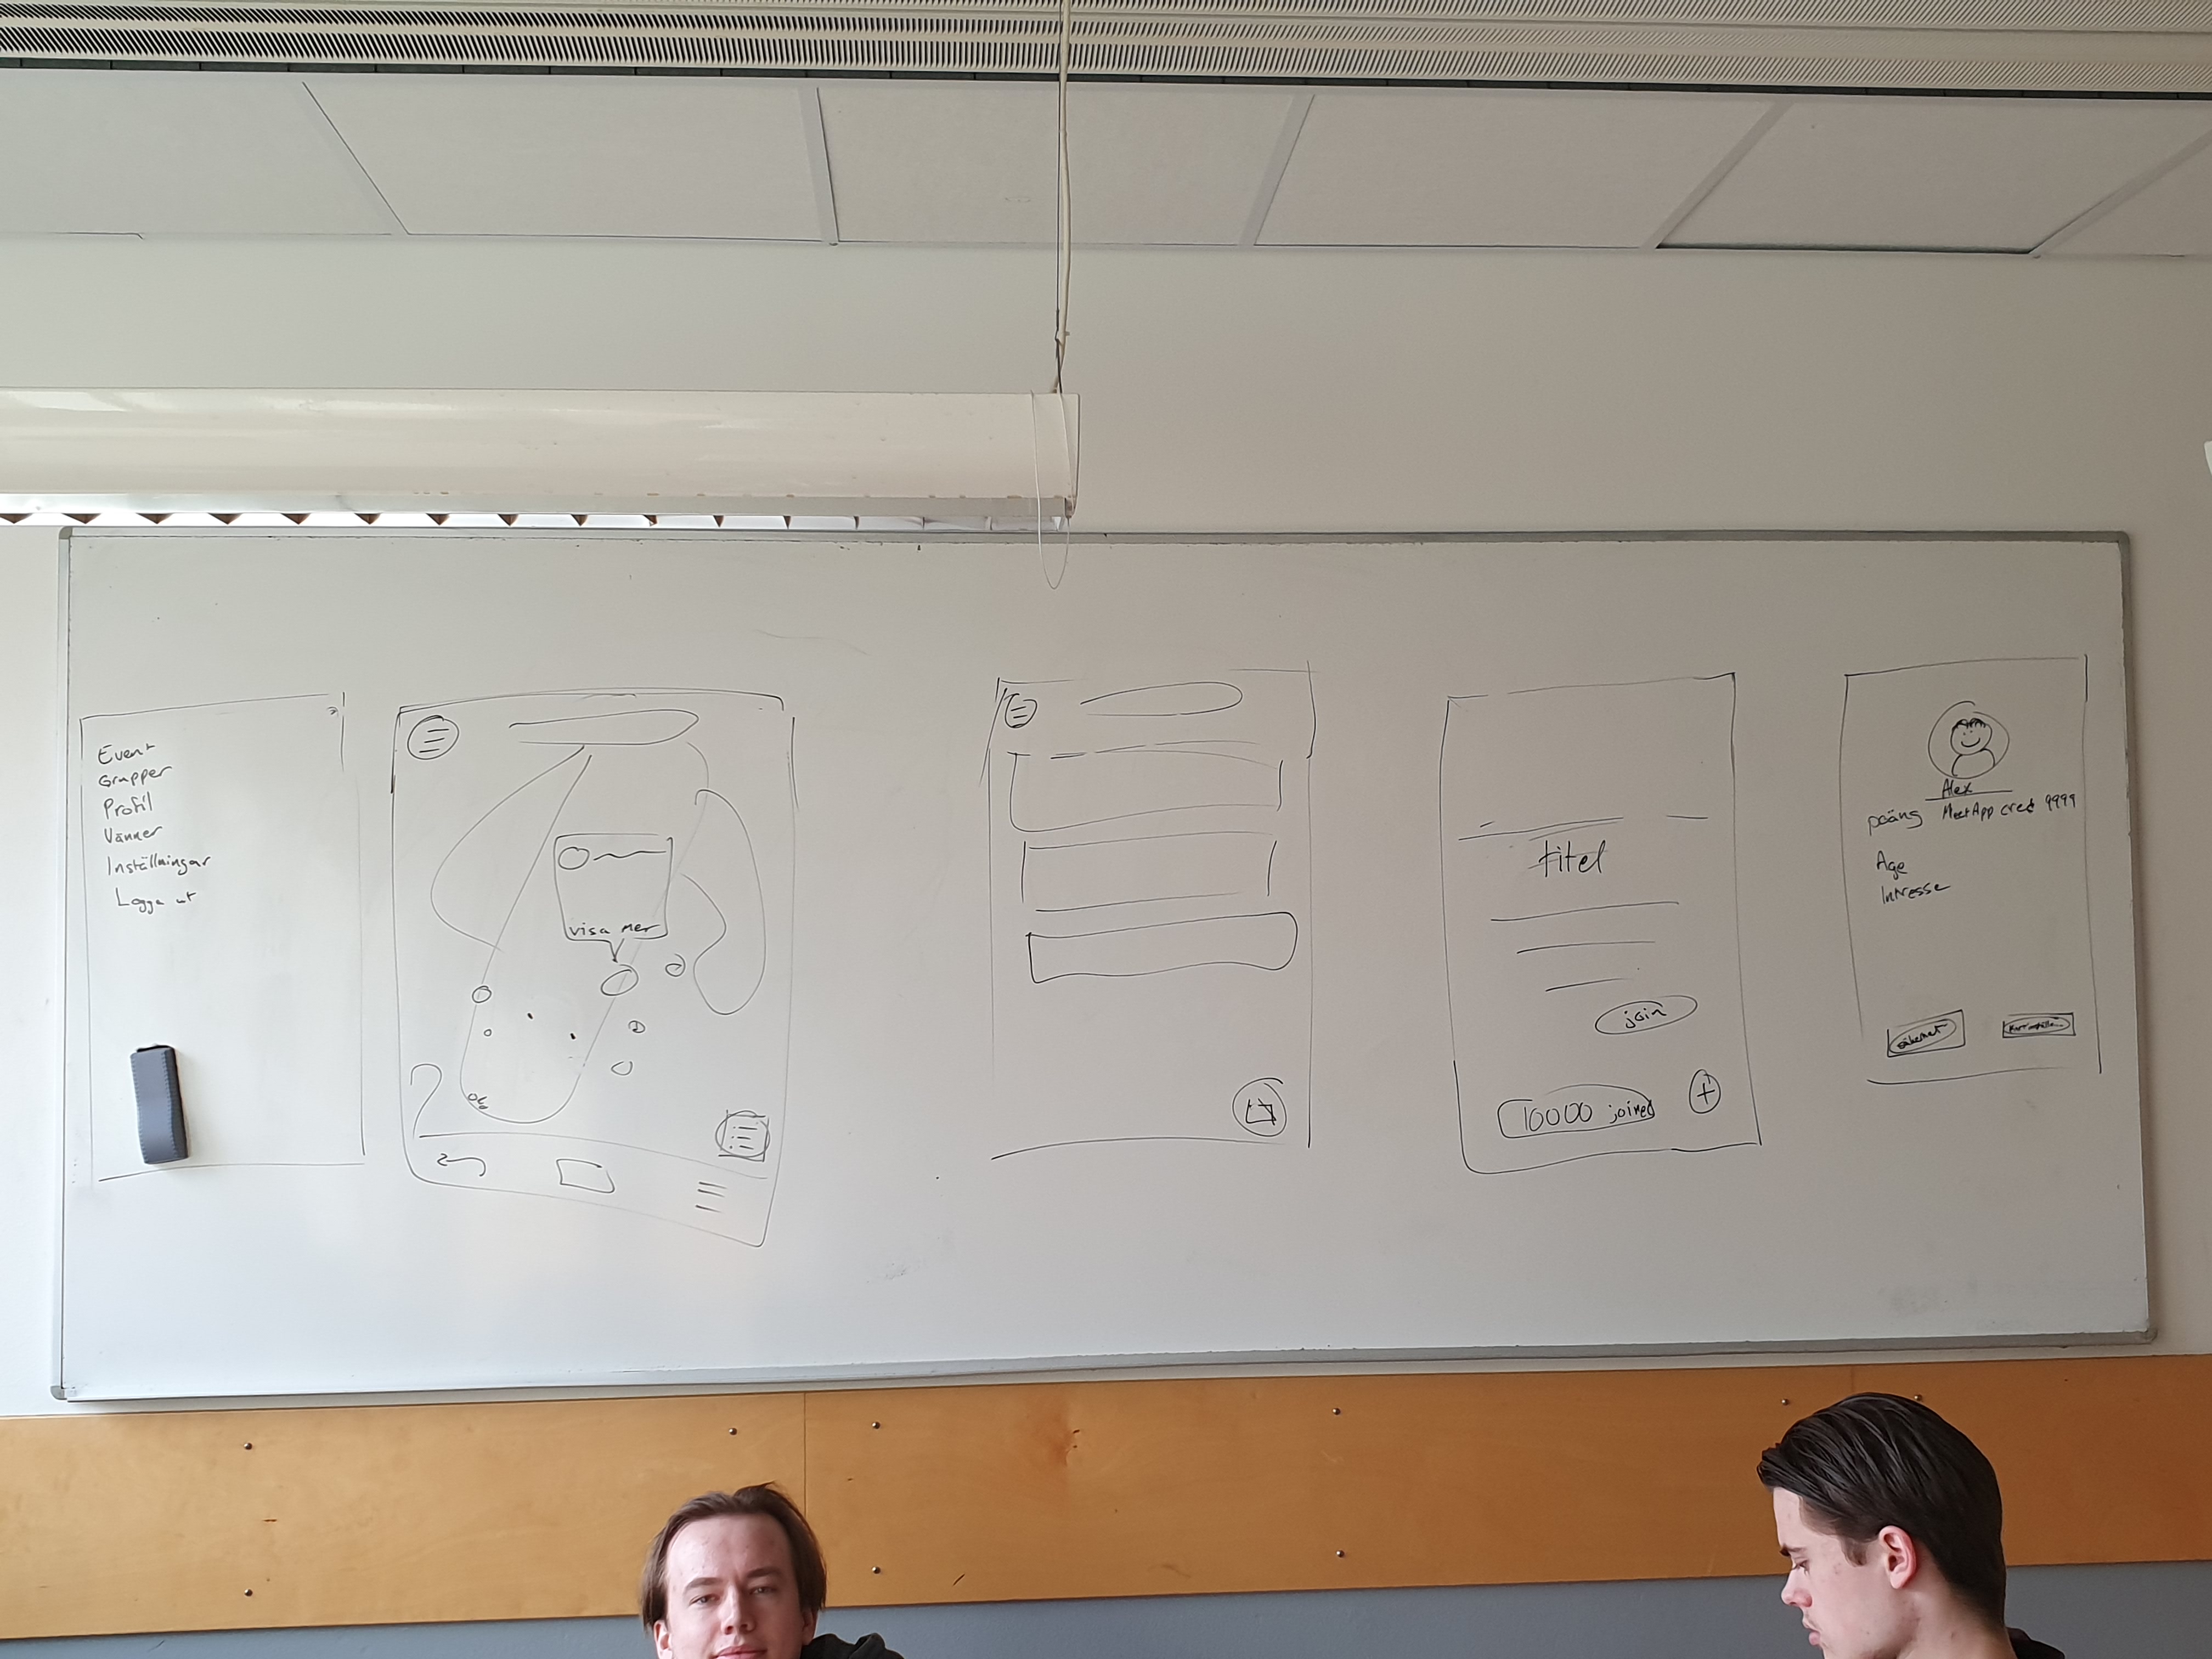 Event
Grupper
Profil
Vänner
Inställningar
Logga ut
visa mer
titel
join
10000 joined
Alex
poäng MeetApp cred 9999
Age
Intresse